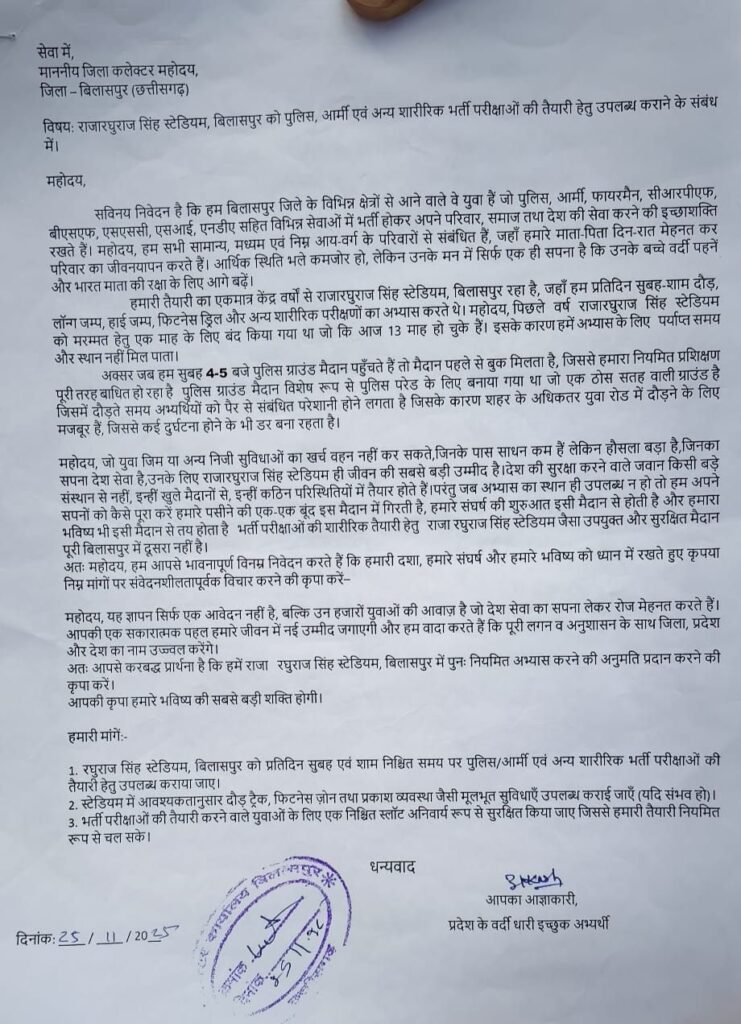 सेवा में,
माननीय जिला कलेक्टर महोदय,
जिला – बिलासपुर (छत्तीसगढ़)
विषय: राजारघुराज सिंह स्टेडियम, बिलासपुर को पुलिस, आर्मी एवं अन्य शारीरिक भर्ती परीक्षाओं की तैयारी हेतु उपलब्ध कराने के संबंध
में।
महोदय,
सविनय निवेदन है कि हम बिलासपुर जिले के विभिन्न क्षेत्रों से आने वाले वे युवा हैं जो पुलिस, आर्मी, फायरमैन, सीआरपीएफ,
बीएसएफ, एसएससी, एसआई, एनडीए सहित विभिन्न सेवाओं में भर्ती होकर अपने परिवार, समाज तथा देश की सेवा करने की इच्छाशक्ति
रखते हैं। महोदय, हम सभी सामान्य, मध्यम एवं निम्न आय-वर्ग के परिवारों से संबंधित हैं, जहाँ हमारे माता-पिता दिन-रात मेहनत कर
परिवार का जीवनयापन करते हैं। आर्थिक स्थिति भले कमजोर हो, लेकिन उनके मन में सिर्फ एक ही सपना है कि उनके बच्चे वर्दी पहनें
और भारत माता की रक्षा के लिए आगे बढ़ें।
हमारी तैयारी का एकमात्र केंद्र वर्षों से राजारघुराज सिंह स्टेडियम, बिलासपुर रहा है, जहाँ हम प्रतिदिन सुबह-शाम दौड़,
लॉन्ग जम्प, हाई जम्प, फिटनेस ड्रिल और अन्य शारीरिक परीक्षणों का अभ्यास करते थे। महोदय, पिछले वर्ष राजारघुराज सिंह स्टेडियम
को मरम्मत हेतु एक माह के लिए बंद किया गया था जो कि आज 13 माह हो चुके हैं। इसके कारण हमें अभ्यास के लिए पर्याप्त समय
और स्थान नहीं मिल पाता।
अक्सर जब हम सुबह 4-5 बजे पुलिस ग्राउंड मैदान पहुँचते हैं तो मैदान पहले से बुक मिलता है, जिससे हमारा नियमित प्रशिक्षण
पूरी तरह बाधित हो रहा है पुलिस ग्राउंड मैदान विशेष रूप से पुलिस परेड के लिए बनाया गया था जो एक ठोस सतह वाली ग्राउंड है
जिसमें दौड़ते समय अभ्यर्थियों को पैर से संबंधित परेशानी होने लगता है जिसके कारण शहर के अधिकतर युवा रोड में दौड़ने के लिए
मजबूर हैं, जिससे कई दुर्घटना होने के भी डर बना रहता है।
महोदय, जो युवा जिम या अन्य निजी सुविधाओं का खर्च वहन नहीं कर सकते,जिनके पास साधन कम हैं लेकिन हौसला बड़ा है,जिनका
सपना देश सेवा है,उनके लिए राजारघुराज सिंह स्टेडियम ही जीवन की सबसे बड़ी उम्मीद है।देश की सुरक्षा करने वाले जवान किसी बड़े
संस्थान से नहीं, इन्हीं खुले मैदानों से, इन्हीं कठिन परिस्थितियों में तैयार होते हैं।परंतु जब अभ्यास का स्थान ही उपलब्ध न हो तो हम अपने
सपनों को कैसे पूरा करें हमारे पसीने की एक-एक बूंद इस मैदान में गिरती है, हमारे संघर्ष की शुरुआत इसी मैदान से होती है और हमारा
भविष्य भी इसी मैदान से तय होता है भर्ती परीक्षाओं की शारीरिक तैयारी हेतु राजा रघुराज सिंह स्टेडियम जैसा उपयुक्त और सुरक्षित मैदान
पूरी बिलासपुर में दूसरा नहीं है।
अतः महोदय, हम आपसे भावनापूर्ण विनम्र निवेदन करते हैं कि हमारी दशा, हमारे संघर्ष और हमारे भविष्य को ध्यान में रखते हुए कृपया
निम्न मांगों पर संवेदनशीलतापूर्वक विचार करने की कृपा करें–
महोदय, यह ज्ञापन सिर्फ एक आवेदन नहीं है, बल्कि उन हजारों युवाओं की आवाज़ है जो देश सेवा का सपना लेकर रोज मेहनत करते हैं।
आपकी एक सकारात्मक पहल हमारे जीवन में नई उम्मीद जगाएगी और हम वादा करते हैं कि पूरी लगन व अनुशासन के साथ जिला, प्रदेश
और देश का नाम उज्ज्वल करेंगे।
अतः आपसे करबद्ध प्रार्थना है कि हमें राजा रघुराज सिंह स्टेडियम, बिलासपुर में पुनः नियमित अभ्यास करने की अनुमति प्रदान करने की
कृपा करें।
आपकी कृपा हमारे भविष्य की सबसे बड़ी शक्ति होगी।
हमारी मांगें:-
1. रघुराज सिंह स्टेडियम, बिलासपुर को प्रतिदिन सुबह एवं शाम निश्चित समय पर पुलिस/आर्मी एवं अन्य शारीरिक भर्ती परीक्षाओं की
तैयारी हेतु उपलब्ध कराया जाए।
2. स्टेडियम में आवश्यकतानुसार दौड़ ट्रैक, फिटनेस ज़ोन तथा प्रकाश व्यवस्था जैसी मूलभूत सुविधाएँ उपलब्ध कराई जाएँ (यदि संभव हो)।
3. भर्ती परीक्षाओं की तैयारी करने वाले युवाओं के लिए एक निश्चित स्लॉट अनिवार्य रूप से सुरक्षित किया जाए जिससे हमारी तैयारी नियमित
रूप से चल सके।
धन्यवाद
आपका आज्ञाकारी,
प्रदेश के वर्दी धारी इच्छुक अभ्यर्थी
दिनांक: 25 / 11 / 2025
कार्यालय बिलासपुर
क्रमांक
दिनांक
छत्तीसगढ़